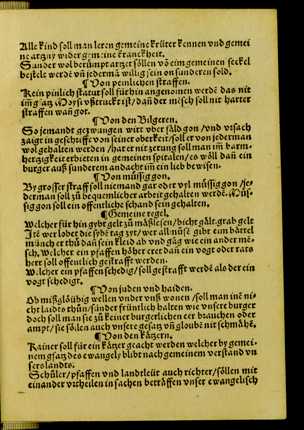 Alle kind soll man leren gemeine krüter kennen vnd gemei
ne artzny wider gemeine kranckheit.
Sunder wolberümpt artzet söllen vō eim gemeinen seckel
bestelt werdē vn̄ jedermā willig sein on sunderen sold.
¶ Von penlichen straffen.
Kein pinlich statut soll für hin angenomen werdē das nit
im gsatz Moysi vßtruckt ist/dañ der mēsch soll nit harter
straffen wan got.
¶ Von den Bilgeren.
So jemandt gezwungen wirt ober fäld gon/vnd vrsach
zaigt in gschrifft von seiner oberkeit/soll er von jederman
wol gehalten werden/hat er nit zerung soll man im barm-
hertzigkeit erbieten in gemeinen spitalen/es wöll dañ ein
burger auß sunderem andacht im ein lieb bewisen.
¶ Von müssiggon.
By grosser straff soll niemand gar oder vyl müssiggon/je-
derman soll zů bequemlicher arbeit gehalten werdē. Mü-
siggon soll ein offentliche schand sein gehalten.
¶ Gemeine regel.
Welcher für hin gebt gelt zů mäßlesen/bicht gält. grab gelt
wer aller nüsē gibt eim båttel
münch er thů dañ sein kleid ab vnd gäg wie ein ander mē-
sch, Welcher ein pfaffen höher eret dañ ein vogt oder rats
herr soll offentlich gestrafft werden.
Welcher ein pfaffen schedig/soll gestrafft werdē als der ein
vogt schedigt.
¶ Von juden vnd haiden.
Ob mißglöubig wellen vnder vnß wonen/soll man inē ni-
cht laides thůn/sunder früntlich halten wie vnsere burger
doch soll man sie zů keiner burgerlichen eer brauchen oder
ampt/sie söllen auch vnsere gesatz vn̄ gloubē nit schmähē,
¶ Von den kätzern.
Kainer soll für ein kätzer geacht werden welcher by gemei-
nem gsatz des ewangely blibt nach gemeinem verstand vn
sers lands.
Schüler/pfaffen vnd landtleüt auch richter/söllen mit
einander vrtheilen in sachen beträffen vnser ewangelisch